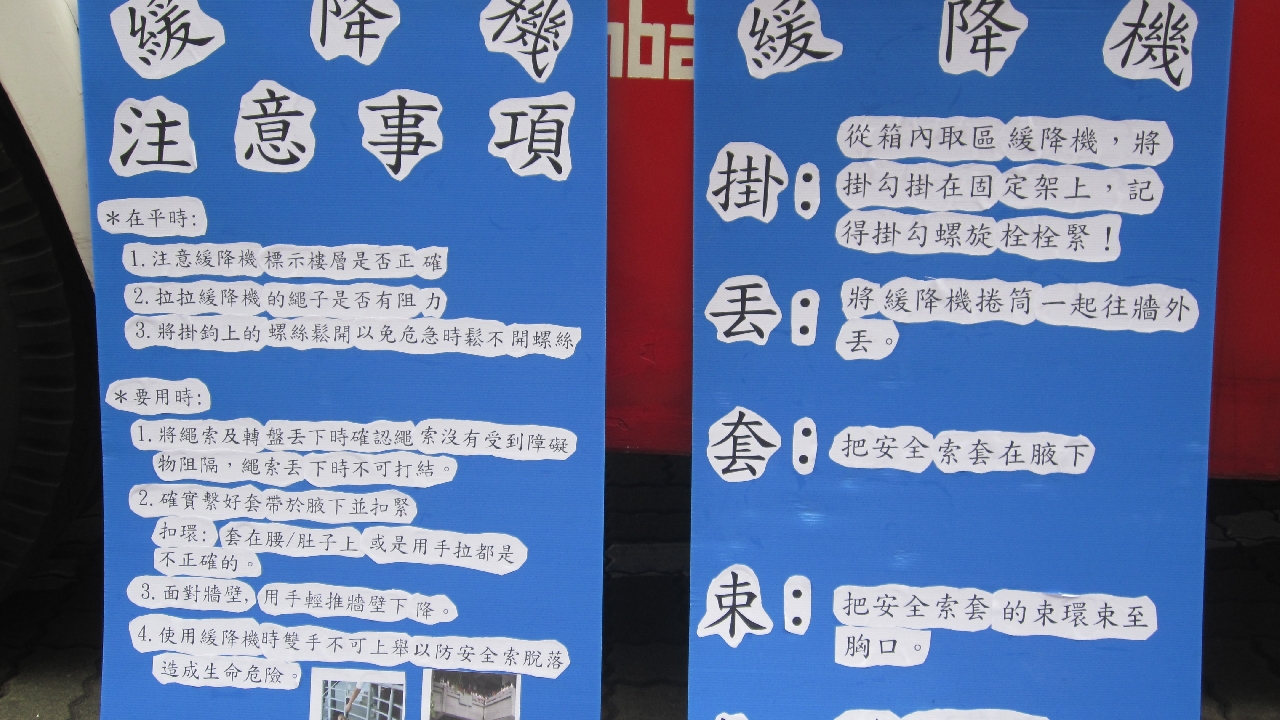 緩降機
注意事項
*在平時:
1.注意緩降機標示樓層是否正確
2.拉拉緩降機的繩子是否有阻力
3.將掛鈎上的螺絲鬆開以免危急時鬆不開螺絲
*要用時:
1.將繩索及轉盤丟下時確認繩索沒有受到障礙
物阻隔,繩索丟下時不可打結。
2.確實繫好套帶於腋下並扣緊
扣環:套在腰/肚子上或是用手拉都是
不正確的。
3.面對牆壁,用手輕推牆壁下降。
4.使用緩降機時雙手不可上舉以防安全索脫落
造成生命危險。
緩降機
掛:從箱內取區緩降機,將
掛勾掛在固定架上,記
得掛勾螺旋栓栓緊!
丟:將緩降機捲筒一起往牆外
丟。
套:把安全索套在腋下
束:把安全索套的束環束至
胸口。